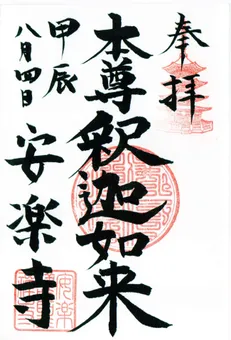 奉拝
本尊釈迦如来
甲辰
八月四日
安楽寺